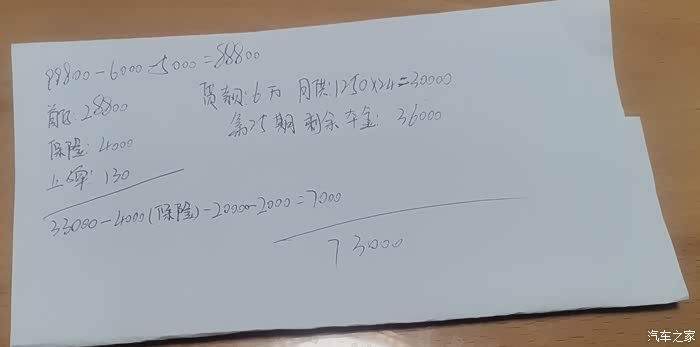 99800-6000-5000=88800
首付:28800
贷款:6万 月供:1250×24=30000
保险:4000
第25期剩余本金:36000
上牌:130
33000-4000(保险)-20000-2000=7000
73000
汽车之家